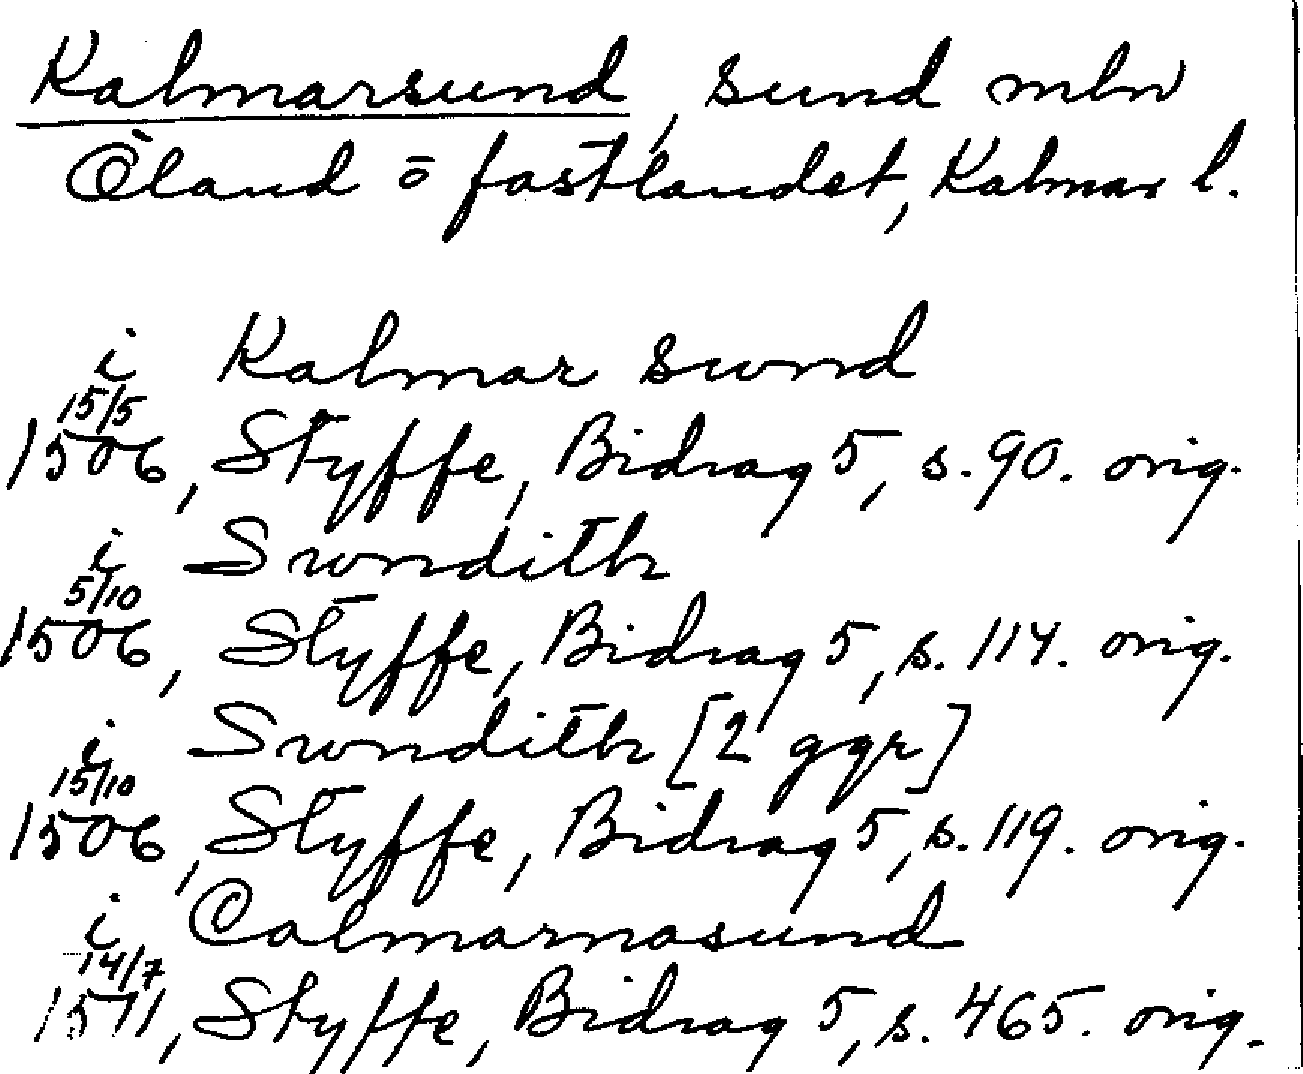 Kalmarsund, sund mln
Öland o fastlandet, Kalmar l.
i Kalmar swnd
15/5
1506, Styffe, Bidrag 5, s. 90. orig.
i Swndith
5/10
1506, Styffe, Bidrag 5, s. 114. orig.
i Swndith [2 ggr]
15/10
1506, Styffe, Bidrag 5, s. 119. orig.
i Calmarnasund
14/7
1511, Styffe, Bidrag 5, s. 465. orig.